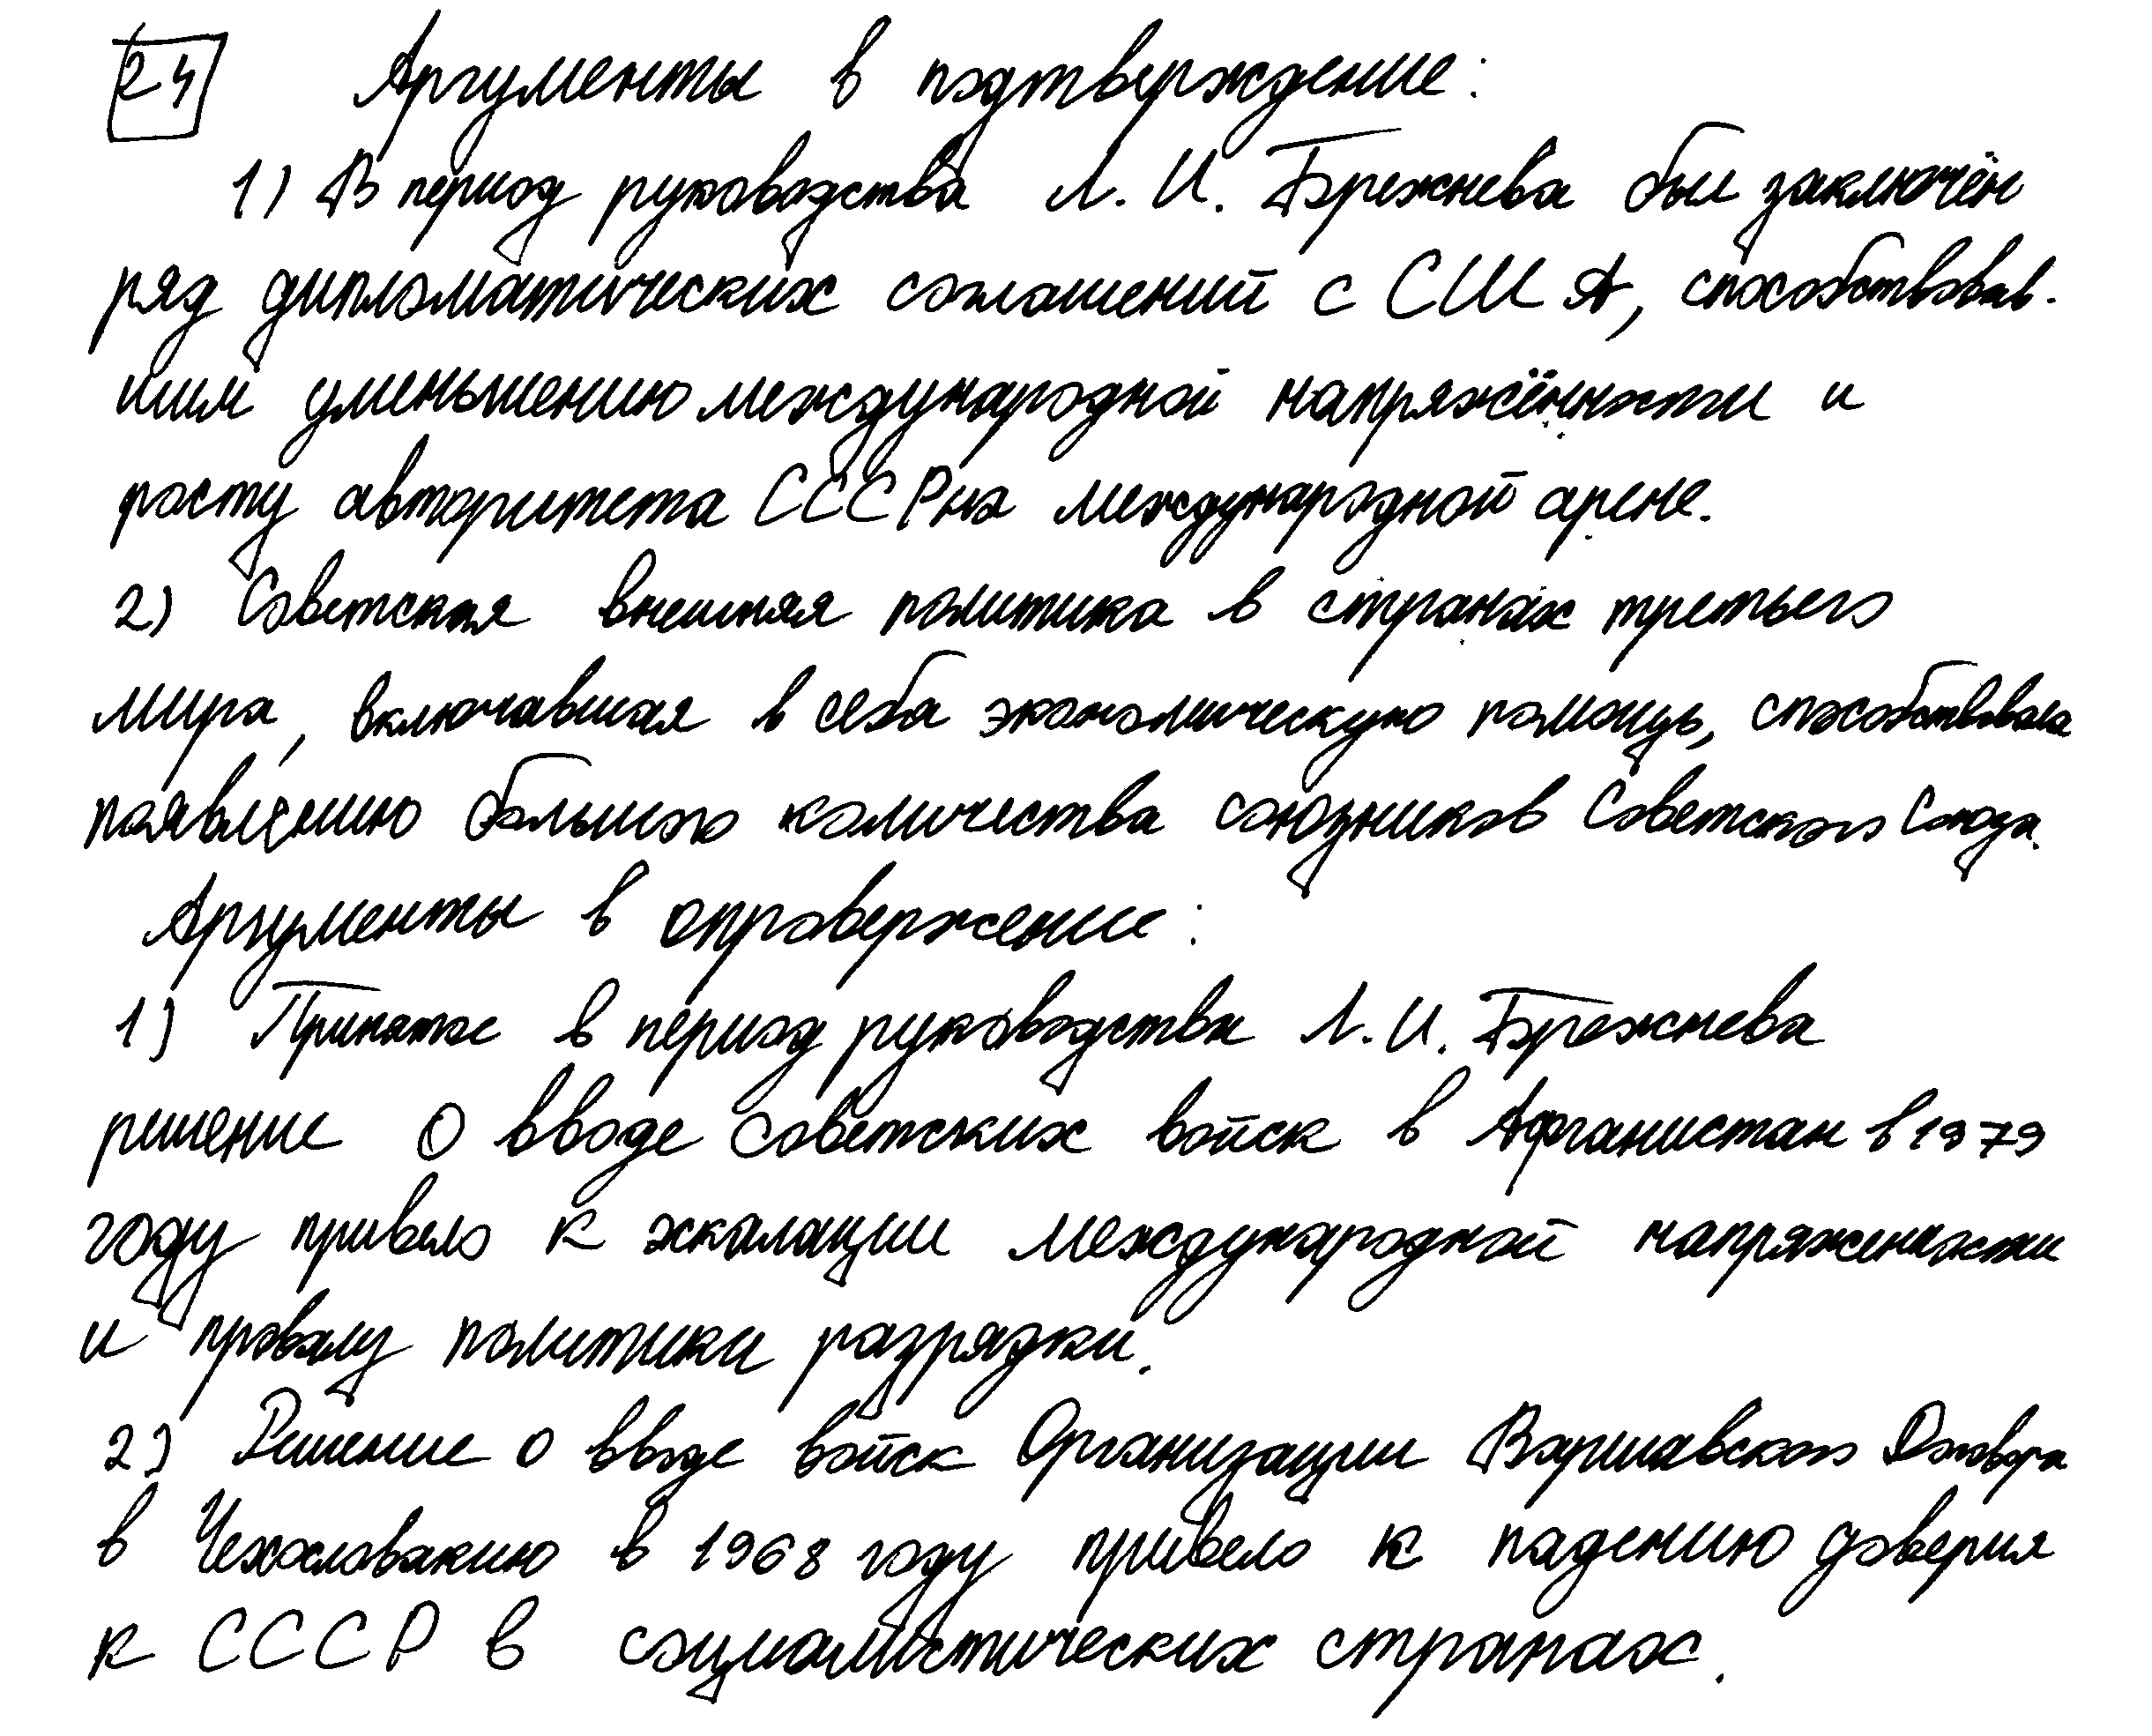 24 Аргументы в подтверждение:
1) В период руководства Л. И. Брежнева был заключён
ряд дипломатических соглашений с США, способствовав-
ших уменьшению международной напряжённости и
росту авторитета СССР на международной арене.
2) Советская внешняя политика в странах третьего
мира, включавшая в себя экономическую помощь, способствовала
появлению большого количества союзников Советского Союза.
Аргументы в опровержение:
1) Принятое в период руководства Л. И. Брежнева
решение о вводе советских войск в Афганистан в 1979
году привело к эскалации международной напряженности
и провалу политики разрядки.
2) Решение о вводе войск Организации Варшавского Договора
в Чехословакию в 1968 году привело к падению доверия
к СССР в социалистических странах.